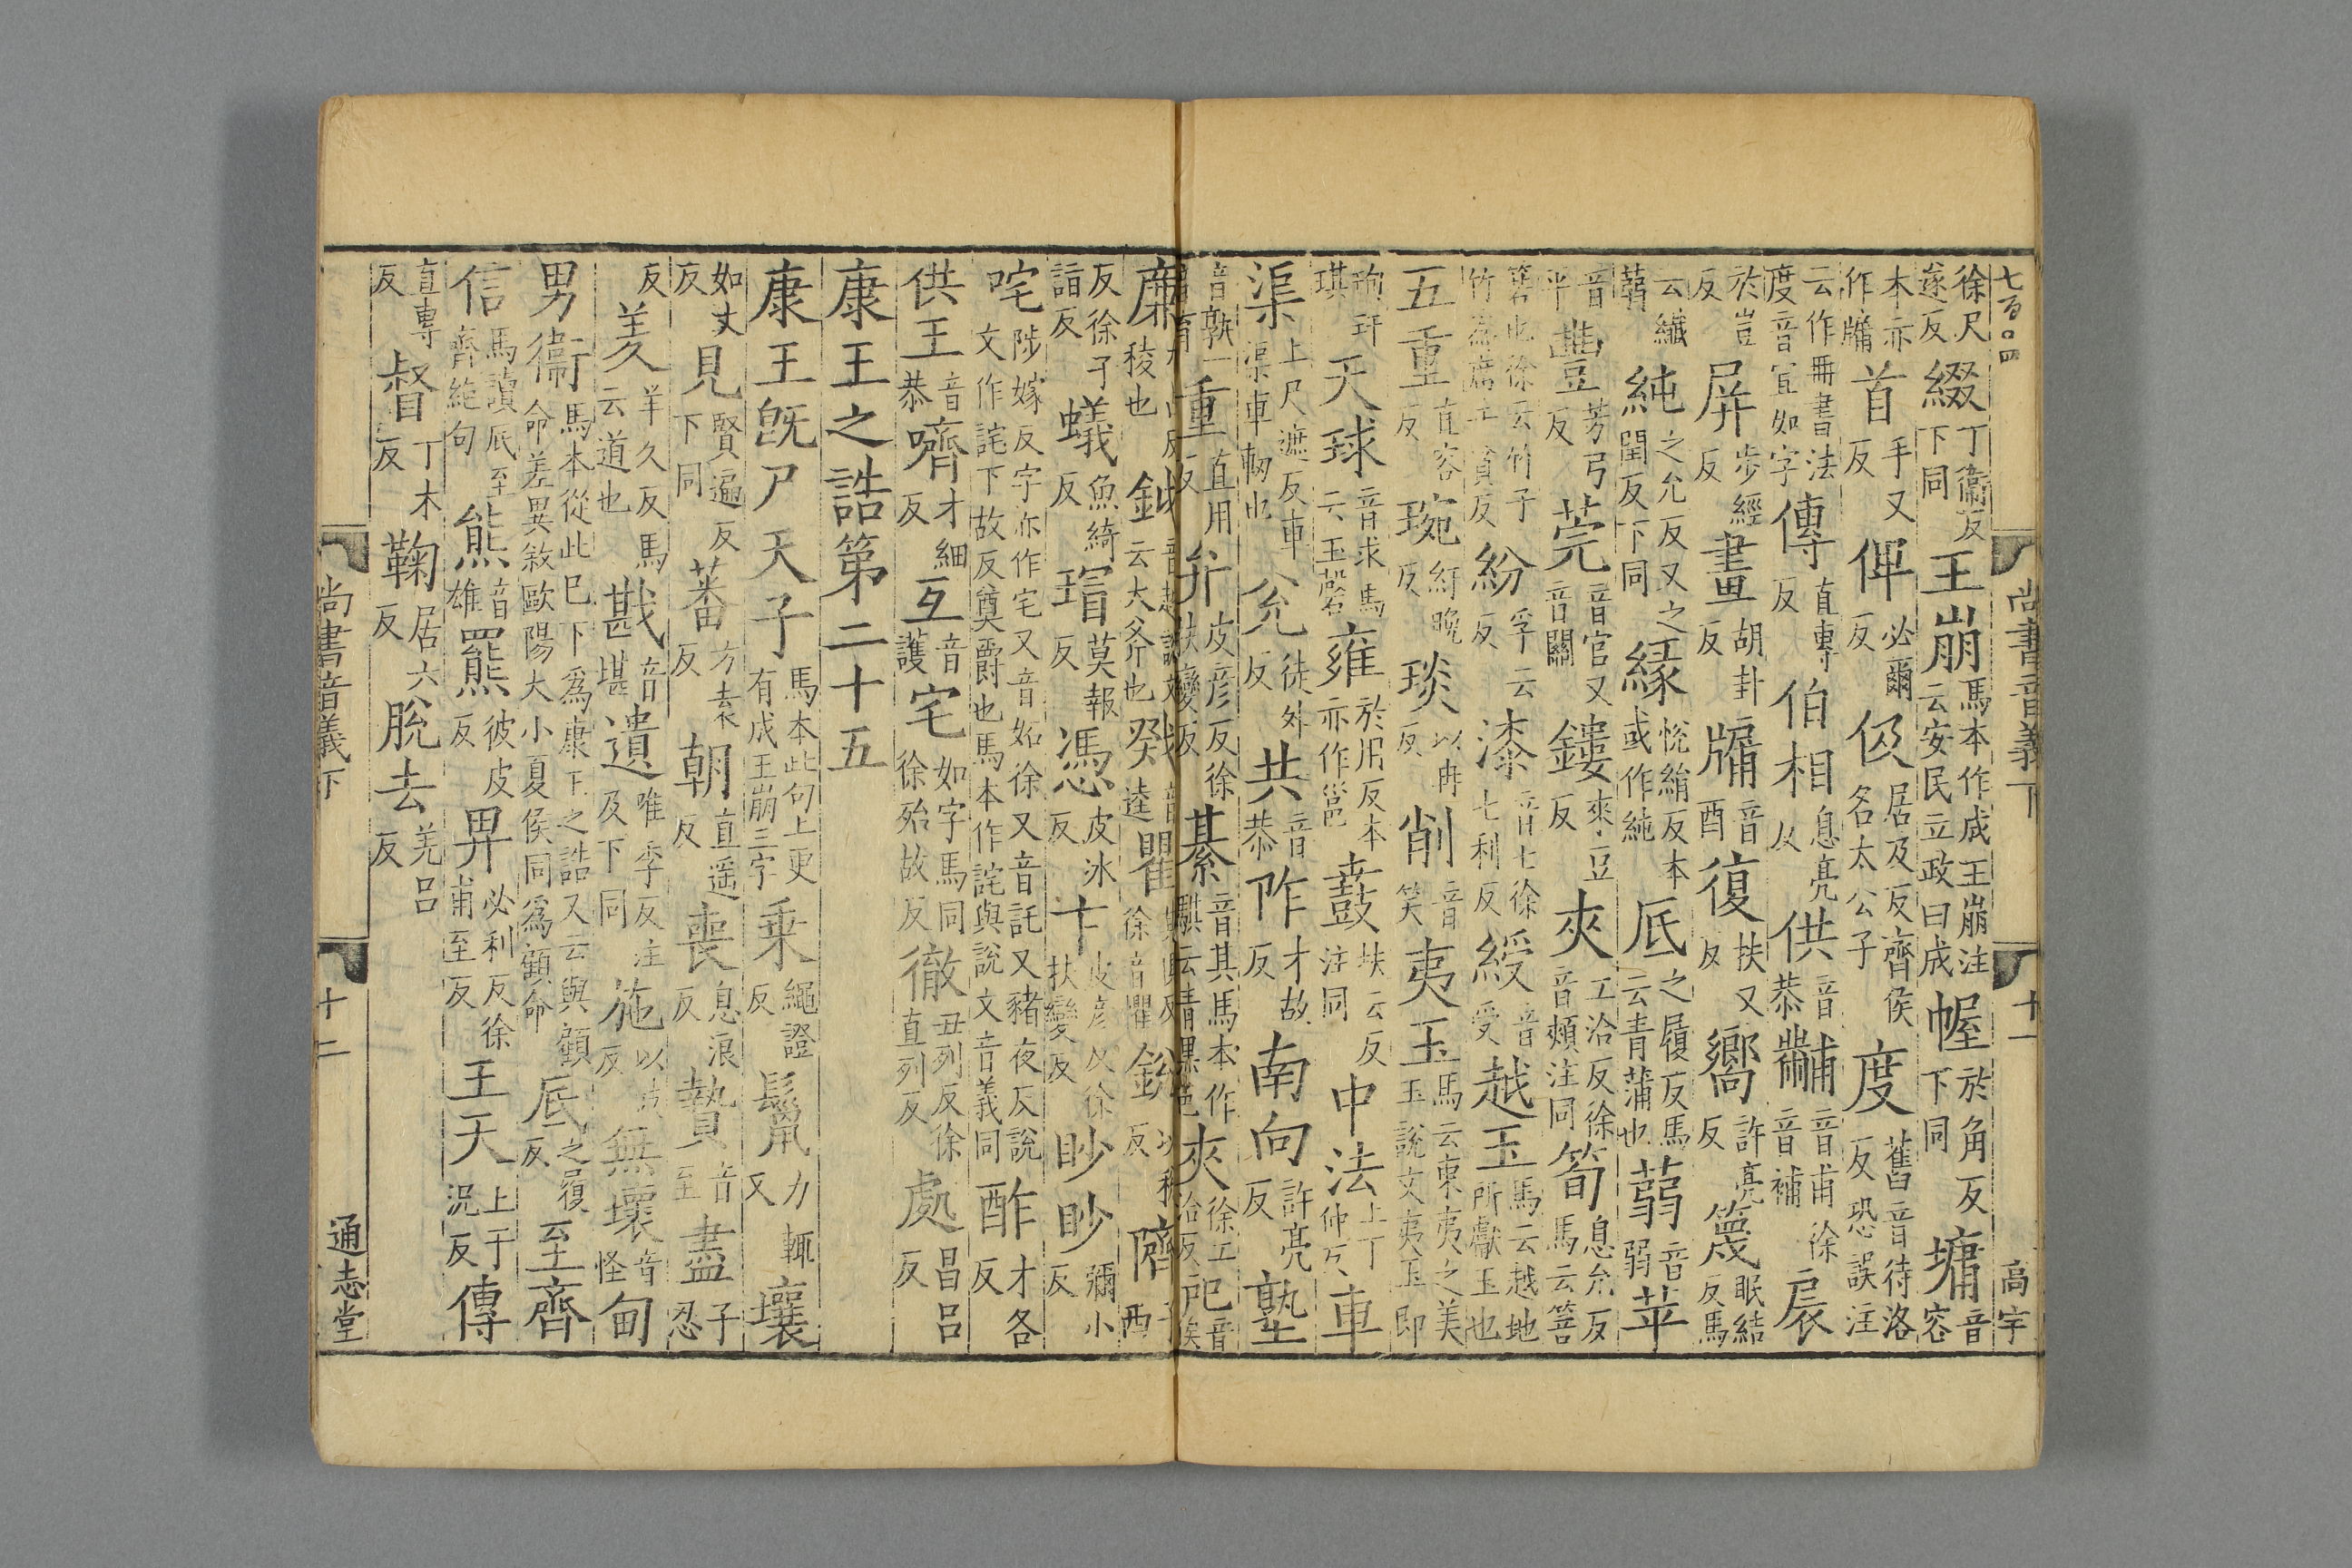 七百〇四
尚書音義下
十一
高宇
徐尺遂反綴丁衞反下同王崩馬本作成王崩注云安民立政曰成幄於角反下同墉音容
木亦作牖首手又反俾必爾反伋居及反齊侯名太公子度舊音待洛反恐誤注
云作冊書法度音宜如字傳直專反伯相息亮反供音恭黼音甫徐音補扆
於豈反屏步經反畫胡卦反牖音酉復扶又反嚮許亮反篾眠結反馬
云纖蒻純之允反又之閏反下同緣悅絹反本或作純底之履反馬云青蒲也蒻音弱苹
音平豐芳弓反莞音官又音關鏤來豆反夾工洽反徐音頰注同筍息允反馬云箁
箬也徐云竹子竹爲席于貧反紛孚云反漆音七徐七利反綬音受越玉馬云越地所獻玉也
五重直容反琬紆晚反琰以冉反削音笑夷玉馬云東夷之美玉說文夷玉即
珣玗琪天球音求馬云玉磬雍於用反本亦作邕鼖扶云反注同中法上丁仲反車
渠上尺遮反車渠車輞也兊徒外反共音恭阼才故反南向許亮反塾
音孰一音育重直用反弁皮彥反徐扶變反綦音其馬本作騏云靑黑色夾徐工洽反戺音俟
廉稜也鉞音越說文云大斧也戣音逵瞿徐音懼銳以稅反隮子西
反徐子詣反蟻魚綺反瑁莫報反馮皮冰反卞皮彥反徐扶變反眇眇彌小反
咤陟嫁反字亦作宅又音妬徐又音託又豬夜反說文作詫下故反奠爵也馬本作詫與說文音義同酢才各反
供王音恭嚌才細反互音護宅如字馬同徐殆故反徹丑列反徐直列反處昌呂反
康王之誥第二十五
康王旣尸天子馬本此句上更有成王崩三字乘繩證反鬣力輒又壤
如丈反見賢遍反下同蕃方袁反朝直遥反喪息浪反贄音至盡子忍
反羑羊久反馬云道也戡音堪遺唯季反注及下同施以豉反無壞音怪甸
男衞馬本從此已下爲康王之誥又云與顧命差異敘歐陽大小夏侯同爲顧命底之履反至齊
信馬讀底至齊絶句熊音雄羆彼皮反畀必利反徐甫至反王天上于況反傳
直專反督丁木反鞠居六反脫去羌呂反
尚書音義下
十二
通志堂